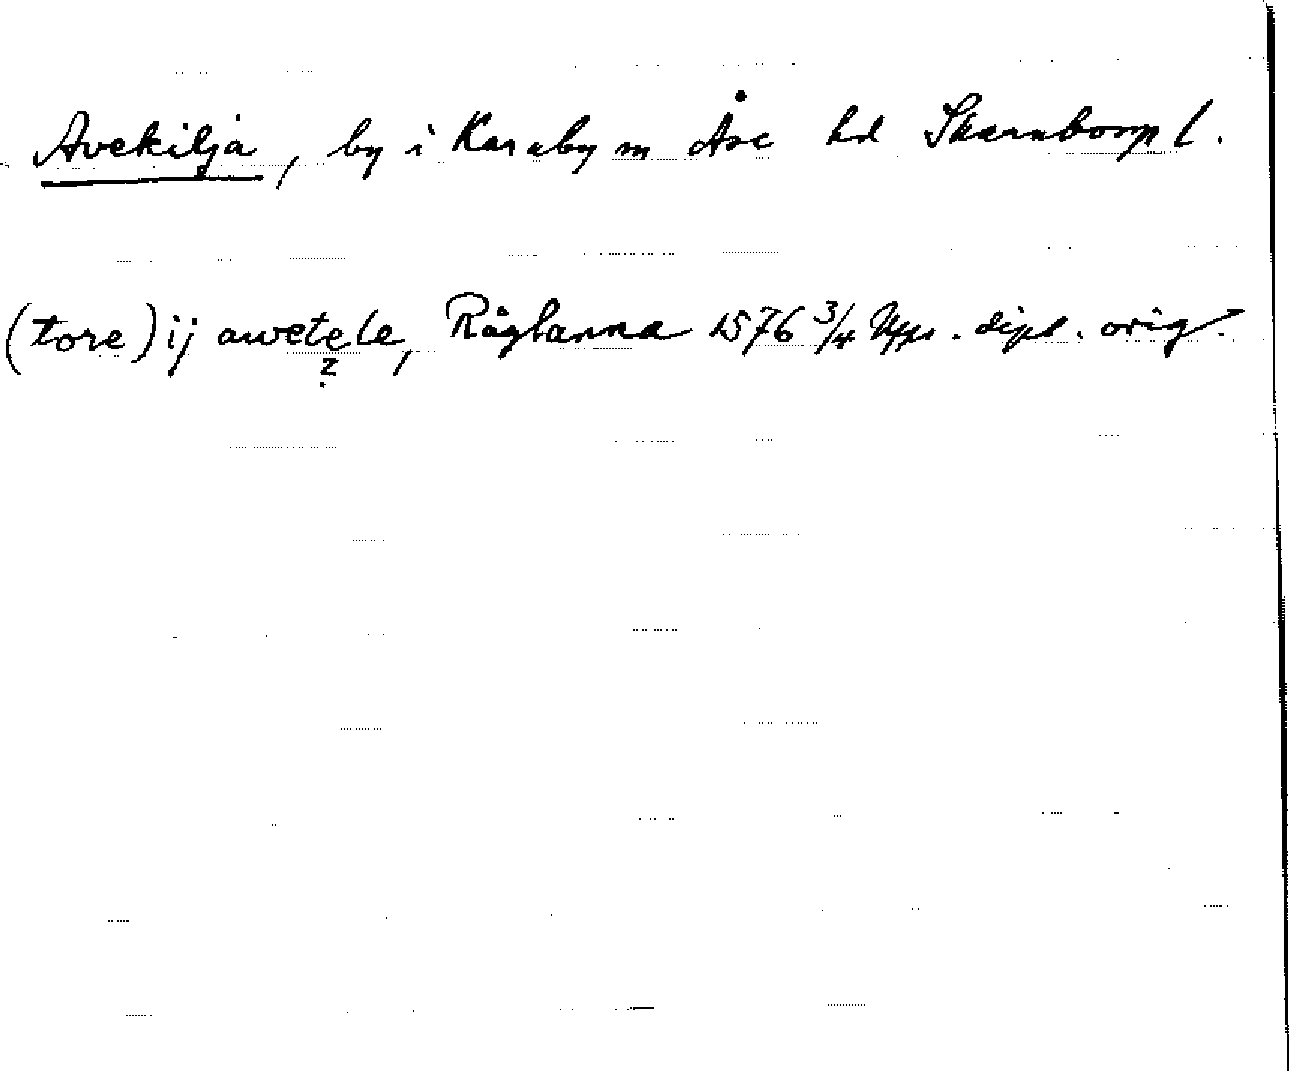 Avekilja, by i Karaby sn Åse hd Skaraborgs l.
(tore) ij awetele, Råglanna 1576 3/4 Upps. dipl. orig.
?